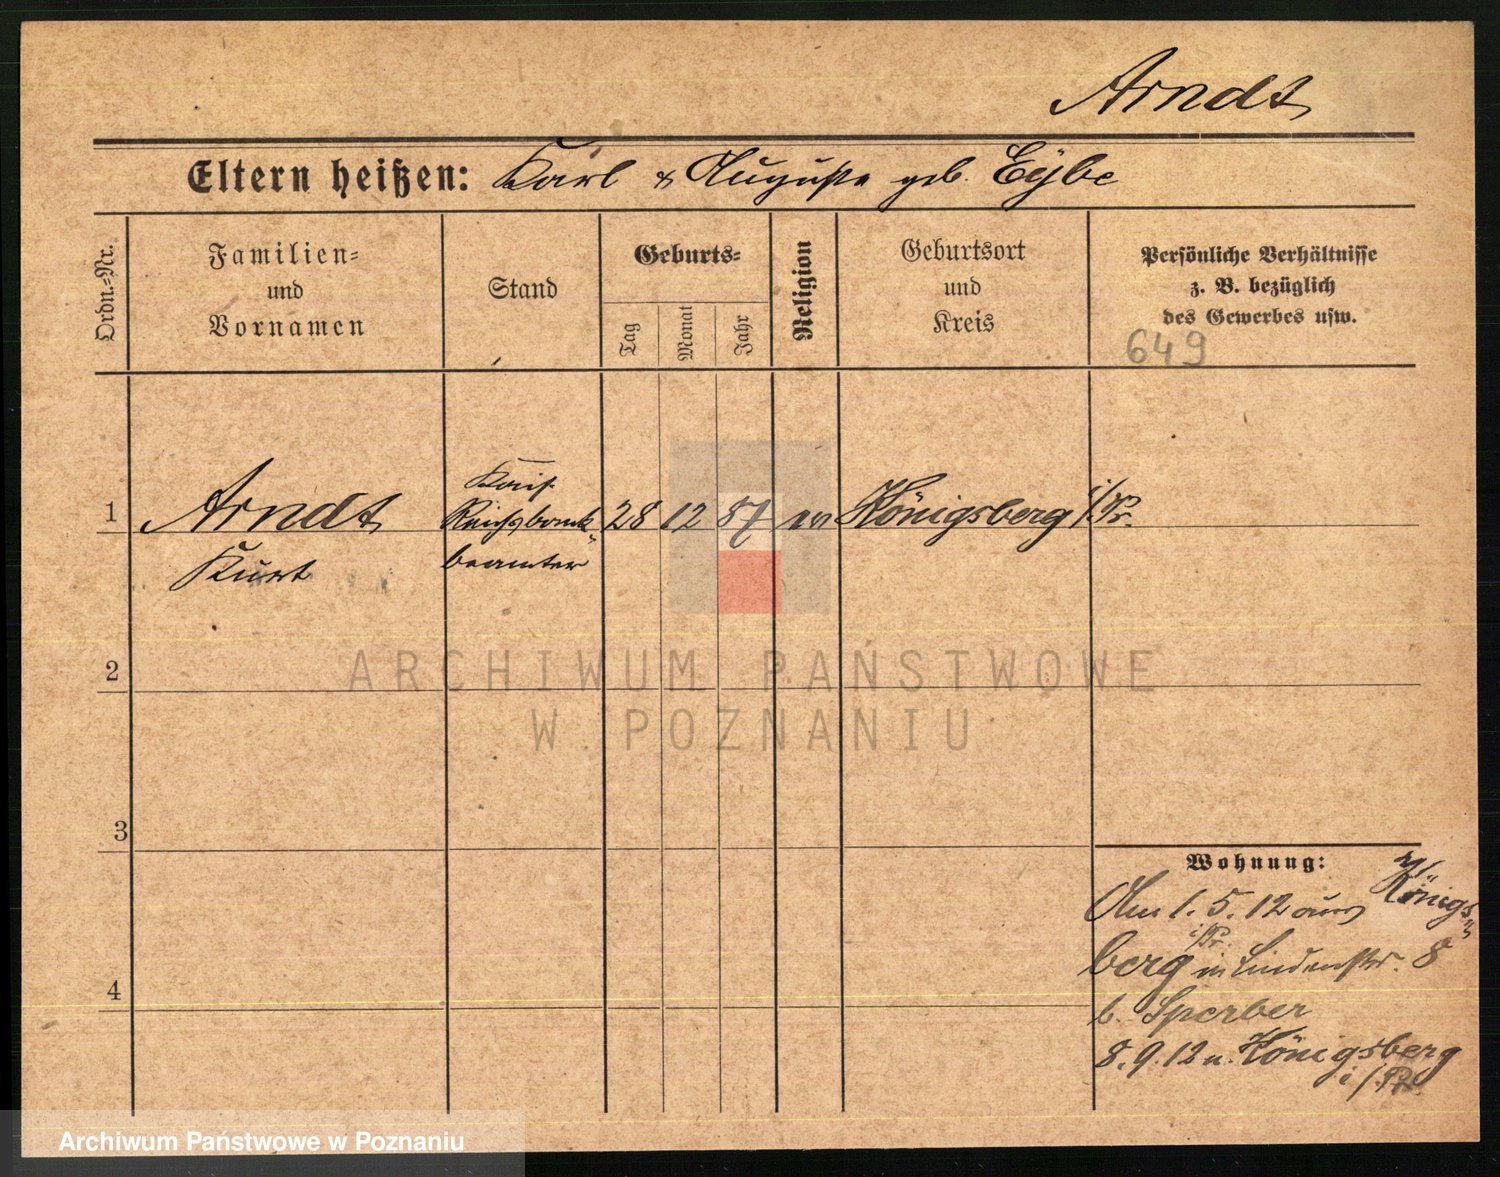 Arndt
Eltern heißen: Karl & Auguste geb. Eybe
Ordn.-Nr.
Familien-
und
Vornamen
Stand
Geburts-
Tag
Monat
Jahr
Religion
Geburtsort
und
Kreis
Persönliche Verhältnisse
z. B. bezüglich
des Gewerbes usw.
649
1
Arndt
Kurt
Kais.
Reichsbank-
beamter
28 12 87 ev Königsberg i/Pr.
2
3
4
ARCHIWUM PAŃSTWOWE
W POZNANIU
Wohnung:
Am 1. 5. 12 aus Königs-
berg i/Pr. in Lindenstr. 8
b. Sperber
8. 9. 12 n. Königsberg
i/Pr.
Archiwum Państwowe w Poznaniu